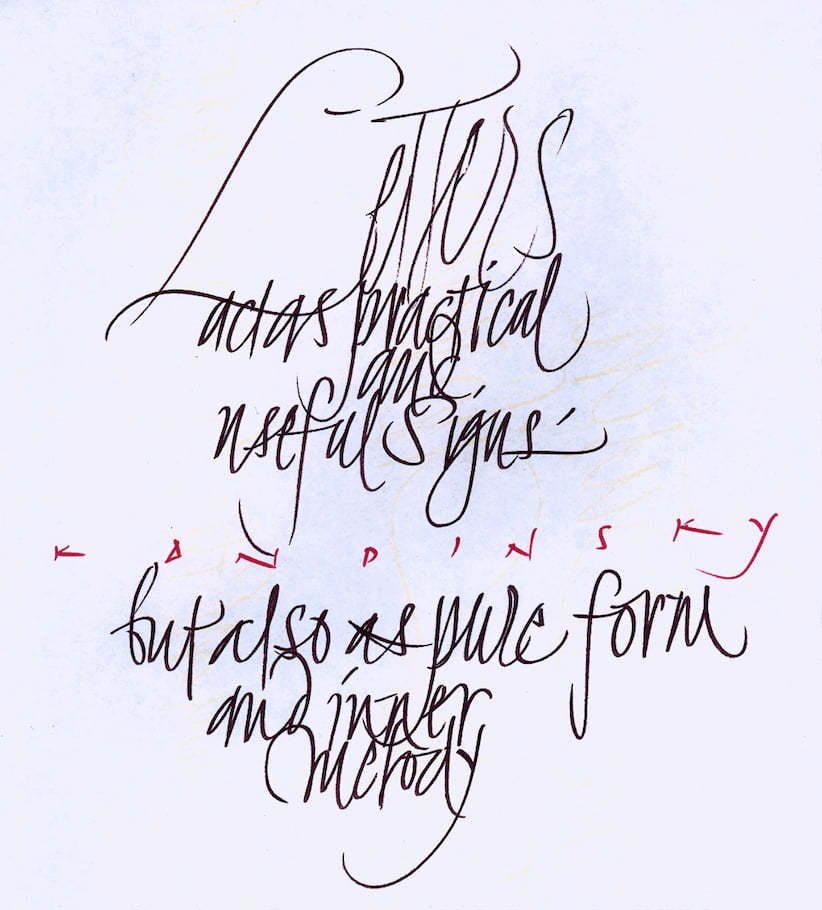 Letters
act as practical
and
useful signs
KANDINSKY
but also as pure form
and inner
melody